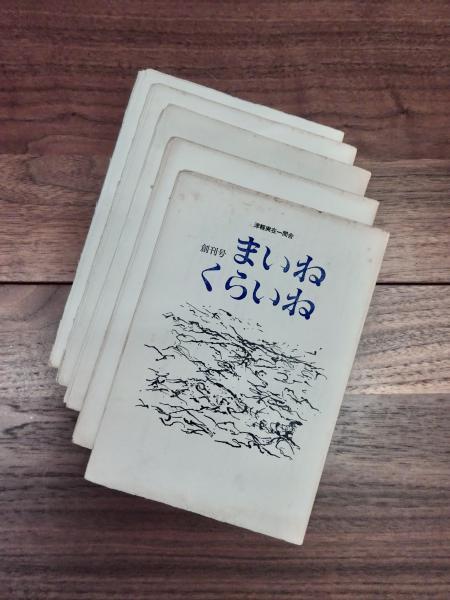 津軽実在一同会
創刊号
まいね
くらいね